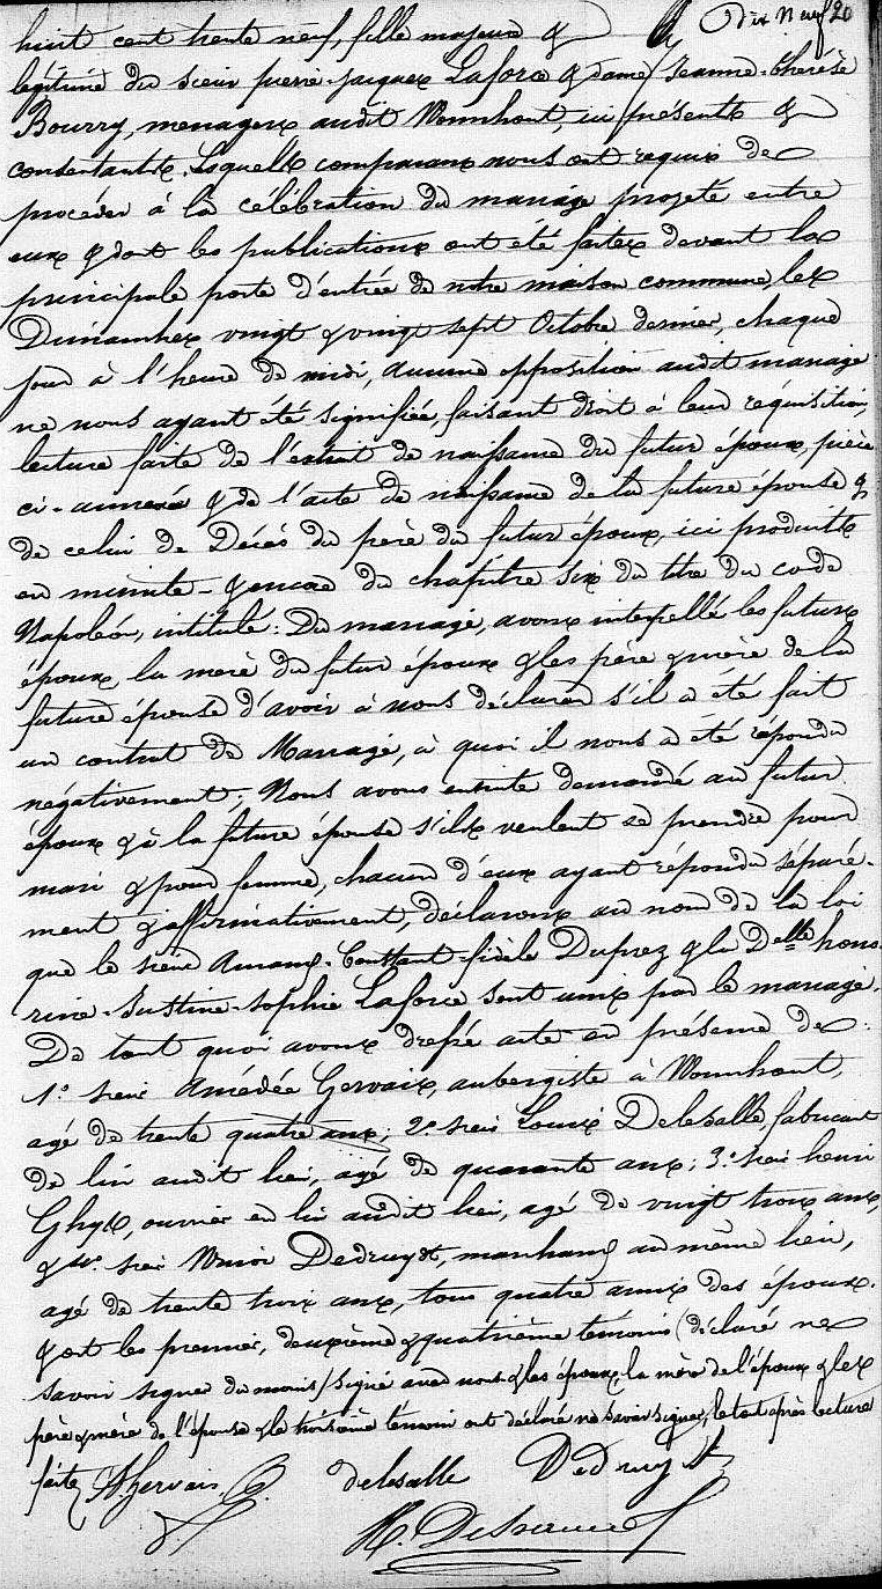 Dix Neuf 20
huit cent trente neuf, fille majeure &
légitime du sieur pierre-jacques Laforce & dame Jeanne-thérèse
Bourry, menagers audit Wormhout, ici présents &
consentants. Lesquels comparans nous ont requis de
procéder à la célébration du mariage projeté entre
eux & dont les publications ont été faites devant la
principale porte d'entrée de notre maison commune, les
Dimanches vingt & vingt sept Octobre dernier, chaque
jour à l'heure de midi, aucune opposition audit mariage
ne nous ayant été signifiée, faisant droit à leur réquisition,
lecture faite de l'extrait de naissance du futur époux, pièce
ci-annexée & de l'acte de naissance de la future épouse &
de celui de Décès du père du futur époux, ici produits
en minute - & encore du chapitre six du titre du code
Napoléon, intitulé: Du mariage, avons interpellé les futurs
époux, la mère du futur époux & les père & mère de la
future épouse d'avoir à nous déclarer s'il a été fait
un contrat de Mariage, à quoi il nous a été répondu
négativement; Nous avons ensuite demandé au futur
époux & à la future épouse s'ils veulent se prendre pour
mari & pour femme, chacun d'eux ayant répondu séparé-
ment & affirmativement, déclarons au nom de la loi
que le sieur Amand-Constant-fidèle Duprez & la Delle hono-
rine-Justine-sophie Laforce sont unis par le mariage.
De tout quoi avons dressé acte en présence de:
1° sieur Amédée Gervais, aubergiste à Wormhout,
agé de trente quatre ans; 2° sieur Louis Delesalle, fabricant
de lin audit lieu, agé de quarante ans; 3° sieur henri
Ghys, ouvrier en lin audit lieu, agé de vingt trois ans,
& 4° sieur Dedruyt, marchand au même lieu,
agé de trente trois ans, tous quatre amis des époux.
& ont les premier, deuxième & quatrième témoins (déclaré ne
savoir signer du moins) signé avec nous & les époux, la mère de l'époux & les
père & mère de l'épouse & le troisième témoin ont déclaré ne savoir signer, le tout après lecture
faite A. Gervais. delesalle Dedruyt